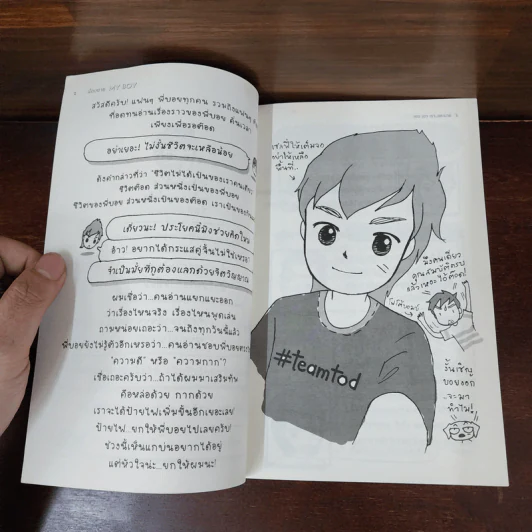 สวัสดีครับ! แฟนๆ พี่บอยทุกคน รวมถึงแฟนๆ
ที่อดทนอ่านเรื่องราวของพี่บอย
เพียงเพื่อรอต๊อด
อย่าเยอะ! ไม่งั้นชีวิตจะเหลือน้อย
ดังคำกล่าวที่ว่า "ชีวิตไม่ได้เป็นของเราคนเดียว
ชีวิตต๊อด ส่วนหนึ่งเป็นของพี่บอย
ชีวิตของพี่บอย ส่วนหนึ่งเป็นของต๊อด เราเป็นของกัน
เดี๋ยวนะ! ประโยคนี้มึงช่วยคิดใหม่
อ้าว! อยากได้กระแสคู่จิ้นไม่ใช่เหรอ
จำเป็นมั้ยที่กูต้องแลกด้วยจิตวิญญาณ
ผมเชื่อว่า...คนอ่านแยกแยะออก
ว่าเรื่องไหนจริง เรื่องไหนพูดเล่น
ถามหน่อยเถอะว่า...จนถึงทุกวันนี้แล้ว
พี่บอยยังไม่รู้ตัวอีกเหรอว่า...คนอ่านชอบพี่บอย
"ความดี" หรือ "ความกาก"?
เชื่อเถอะครับว่า...ถ้าได้ผมมาเสริมทัพ
คือหล่อด้วย กากด้วย
เราจะได้ป้ายไฟเพิ่มขึ้นอีกเยอะเลย
ป้ายไฟ...ยกให้พี่บอยไปเลยครับ!
ช่วงนี้เห็นแกบ่นอยากได้อยู่
แต่หัวใจน่ะ...ยกให้ผมนะ!
ให้เหลือ
พื้นที่..
#teamtod
มึงคนเดียว
คูณสมบัติครบ
แล้วเหอะไอ้ต๊อด!
งั้นเชิญ
บอยออก
..จะมา
ทำไม!